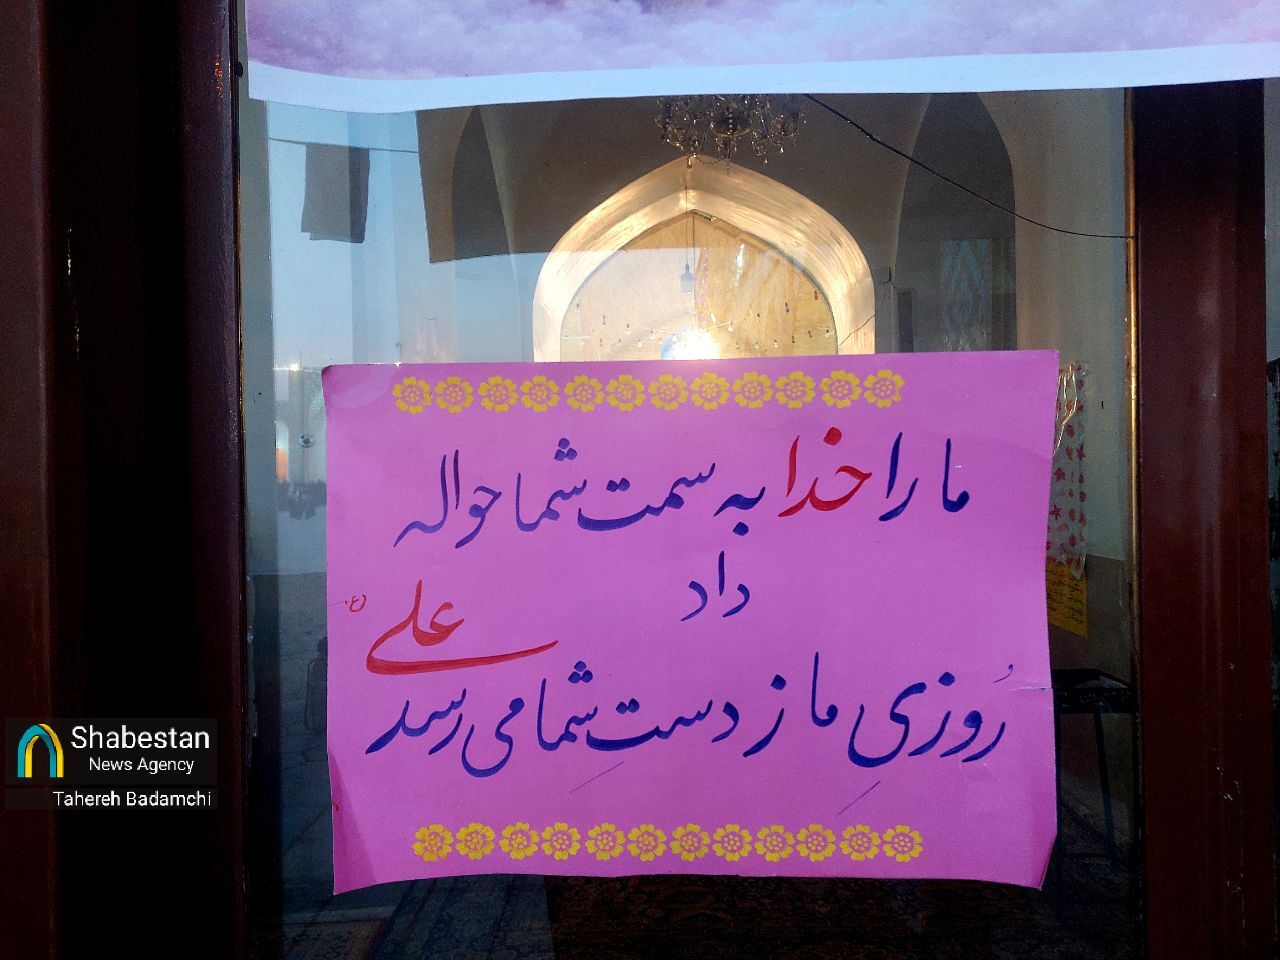 ما را خدا به سمت شما حواله
داد
علی (ع)
رُوزیِ ما ز دستِ شما می رسد
Shabestan
News Agency
Tahereh Badamchi